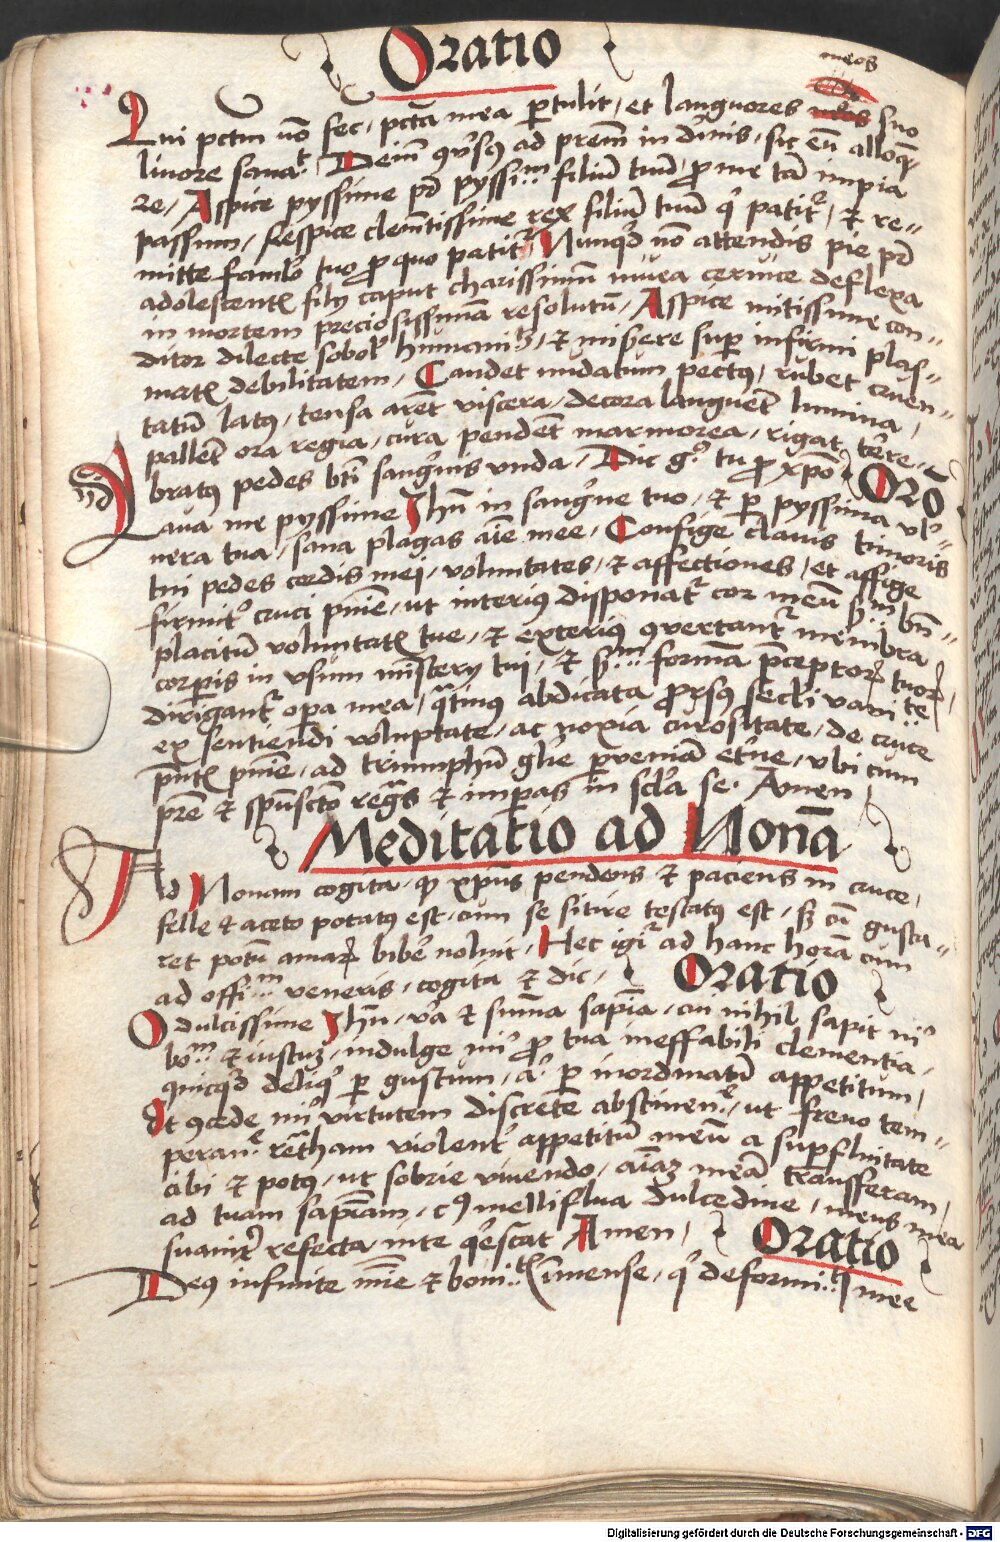 Oratio
meos
Qui pctm nō fec, pctā mea ptulit, et languores suo
liuore sanat. Dein 9uersus ad prem in diuis, sic eū alloq
re, Aspice pyssime pr pyssim filiū tuū, pro me tā impia
passum, Respice clemētissime rex filiū tuū q patit, et re=
mitte famlo tuo pro quo patit. Nunqd nō attendis pie pr
adolescent fily caput charissimū niuea ceruice deflexa
in mortem preciosissimā resolutū, Aspice mitissime con=
ditor dilecte sobol humani, et miserere sup infirmi plas=
mat debilitatem, Candet nudatum pectus, rubet cruen=
tatū latus, tensa arēt viscera, decora languēt lumina,
pallēt ora regia, cura pendēt marmorea, rigat tere=
bratus pedes bti sanguis vnda, Dic g tu pro xpo Oro
Laua me pyssime Jhu in sanguine tuo, et per pyssima vl=
nera tua, sana plagas aie mee, Confige clauis timoris
tui pedes cordis mei, voluntates, et affectiones, et affige
firmit cruci pnie, ut interius disponat cor meū bn=
placitū voluntat tue, et exterius 9uertant membra
corporis in vsum mistery tui, et formā pceptor tuor,
dirigant opa mea, qtinus abdicata prorsus secli vani te
ex sentiendi voluptate, ac noxia curositate, de cruce
pnt pnie, ad triumphū glie pueniā etne, vbi cum
prē et spūscto regnas et imperas in scla se. Amen
Meditatio ad Nonā
Ad Nonam cogita, q xpus pendens et paciens in cruce,
felle et aceto potatus est, cum se sitire testatus est, sz cū gusta=
ret potū amar bibe noluit, Hec igi ad hanc horā cum
ad offim veneris, cogita et dic, Oratio
O dulcissime Jhu, va et summa sapia, cui nihil sapit ni
bo et iustuz, indulge mi pro tua ineffabili clementia,
quicqd deliq per gustum, a per inordinatū appetitum,
Et 9cede mi virtutem discrete abstinen, ut freno tem=
peran retham violent appetitū meū a supfluitate
cibi et potus, ut sobrie viuendo, aiaz meā transferam,
ad tuam sapiam, c9 melliflua dulcedine, mens mea
suauit refecta inte qescat Amen, Oratio
Deus infinite mie et bonit imense, q deformi mee
Digitalisierung gefördert durch die Deutsche Forschungsgemeinschaft - DFG